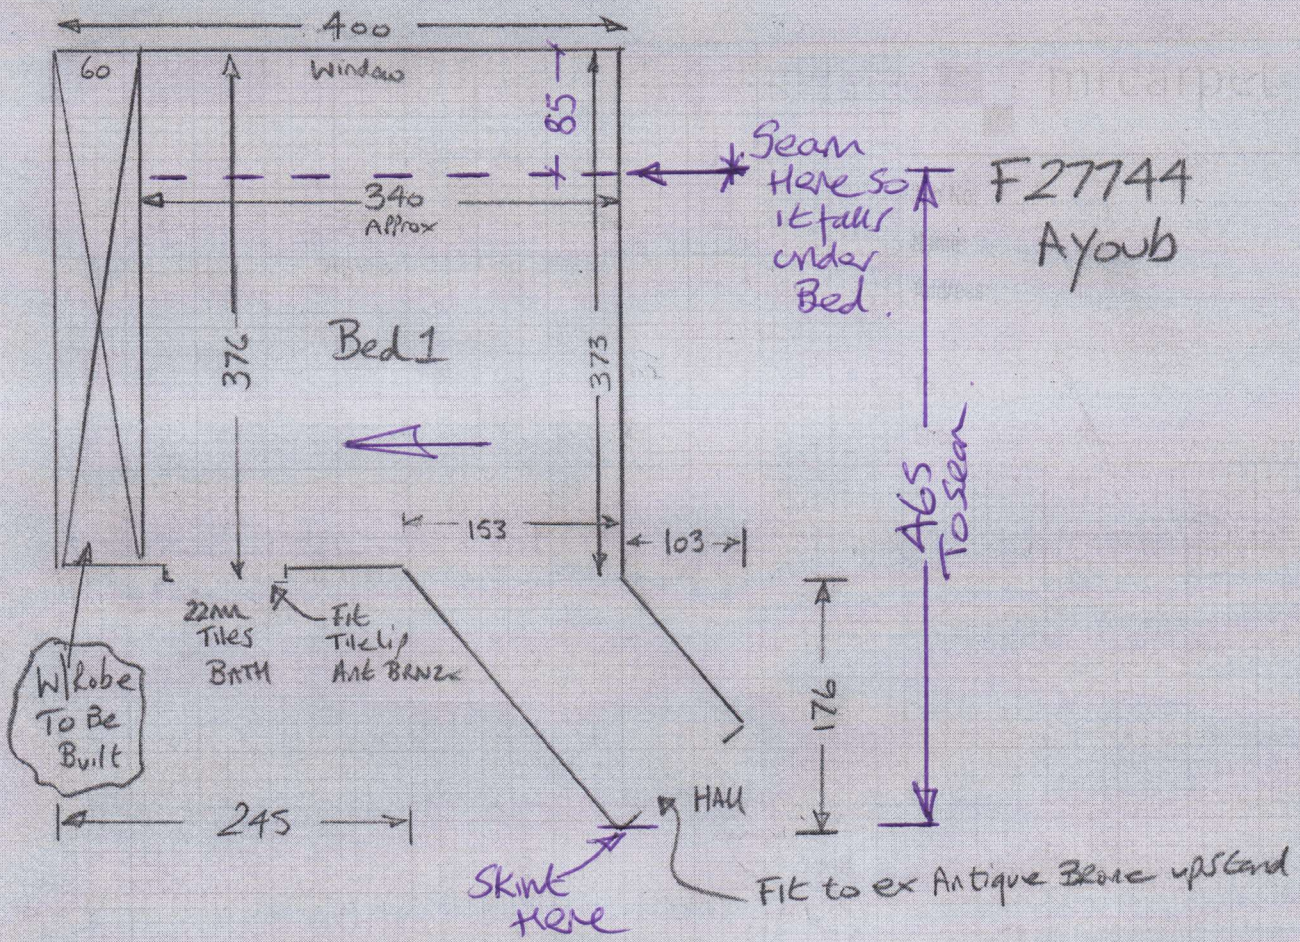 400
60
Window
85
Seam
Here so
it falls
under
Bed.
F27744
Ayoub
340
Approx
376
Bed 1
373
465
To seam
153
103
22mm
Tiles
BATH
Fit
Tile lip
Ant BRNZ
W/Robe
To Be
Built
176
245
HALL
Skint
Here
Fit to ex Antique Bronze upstand
mrcarpet